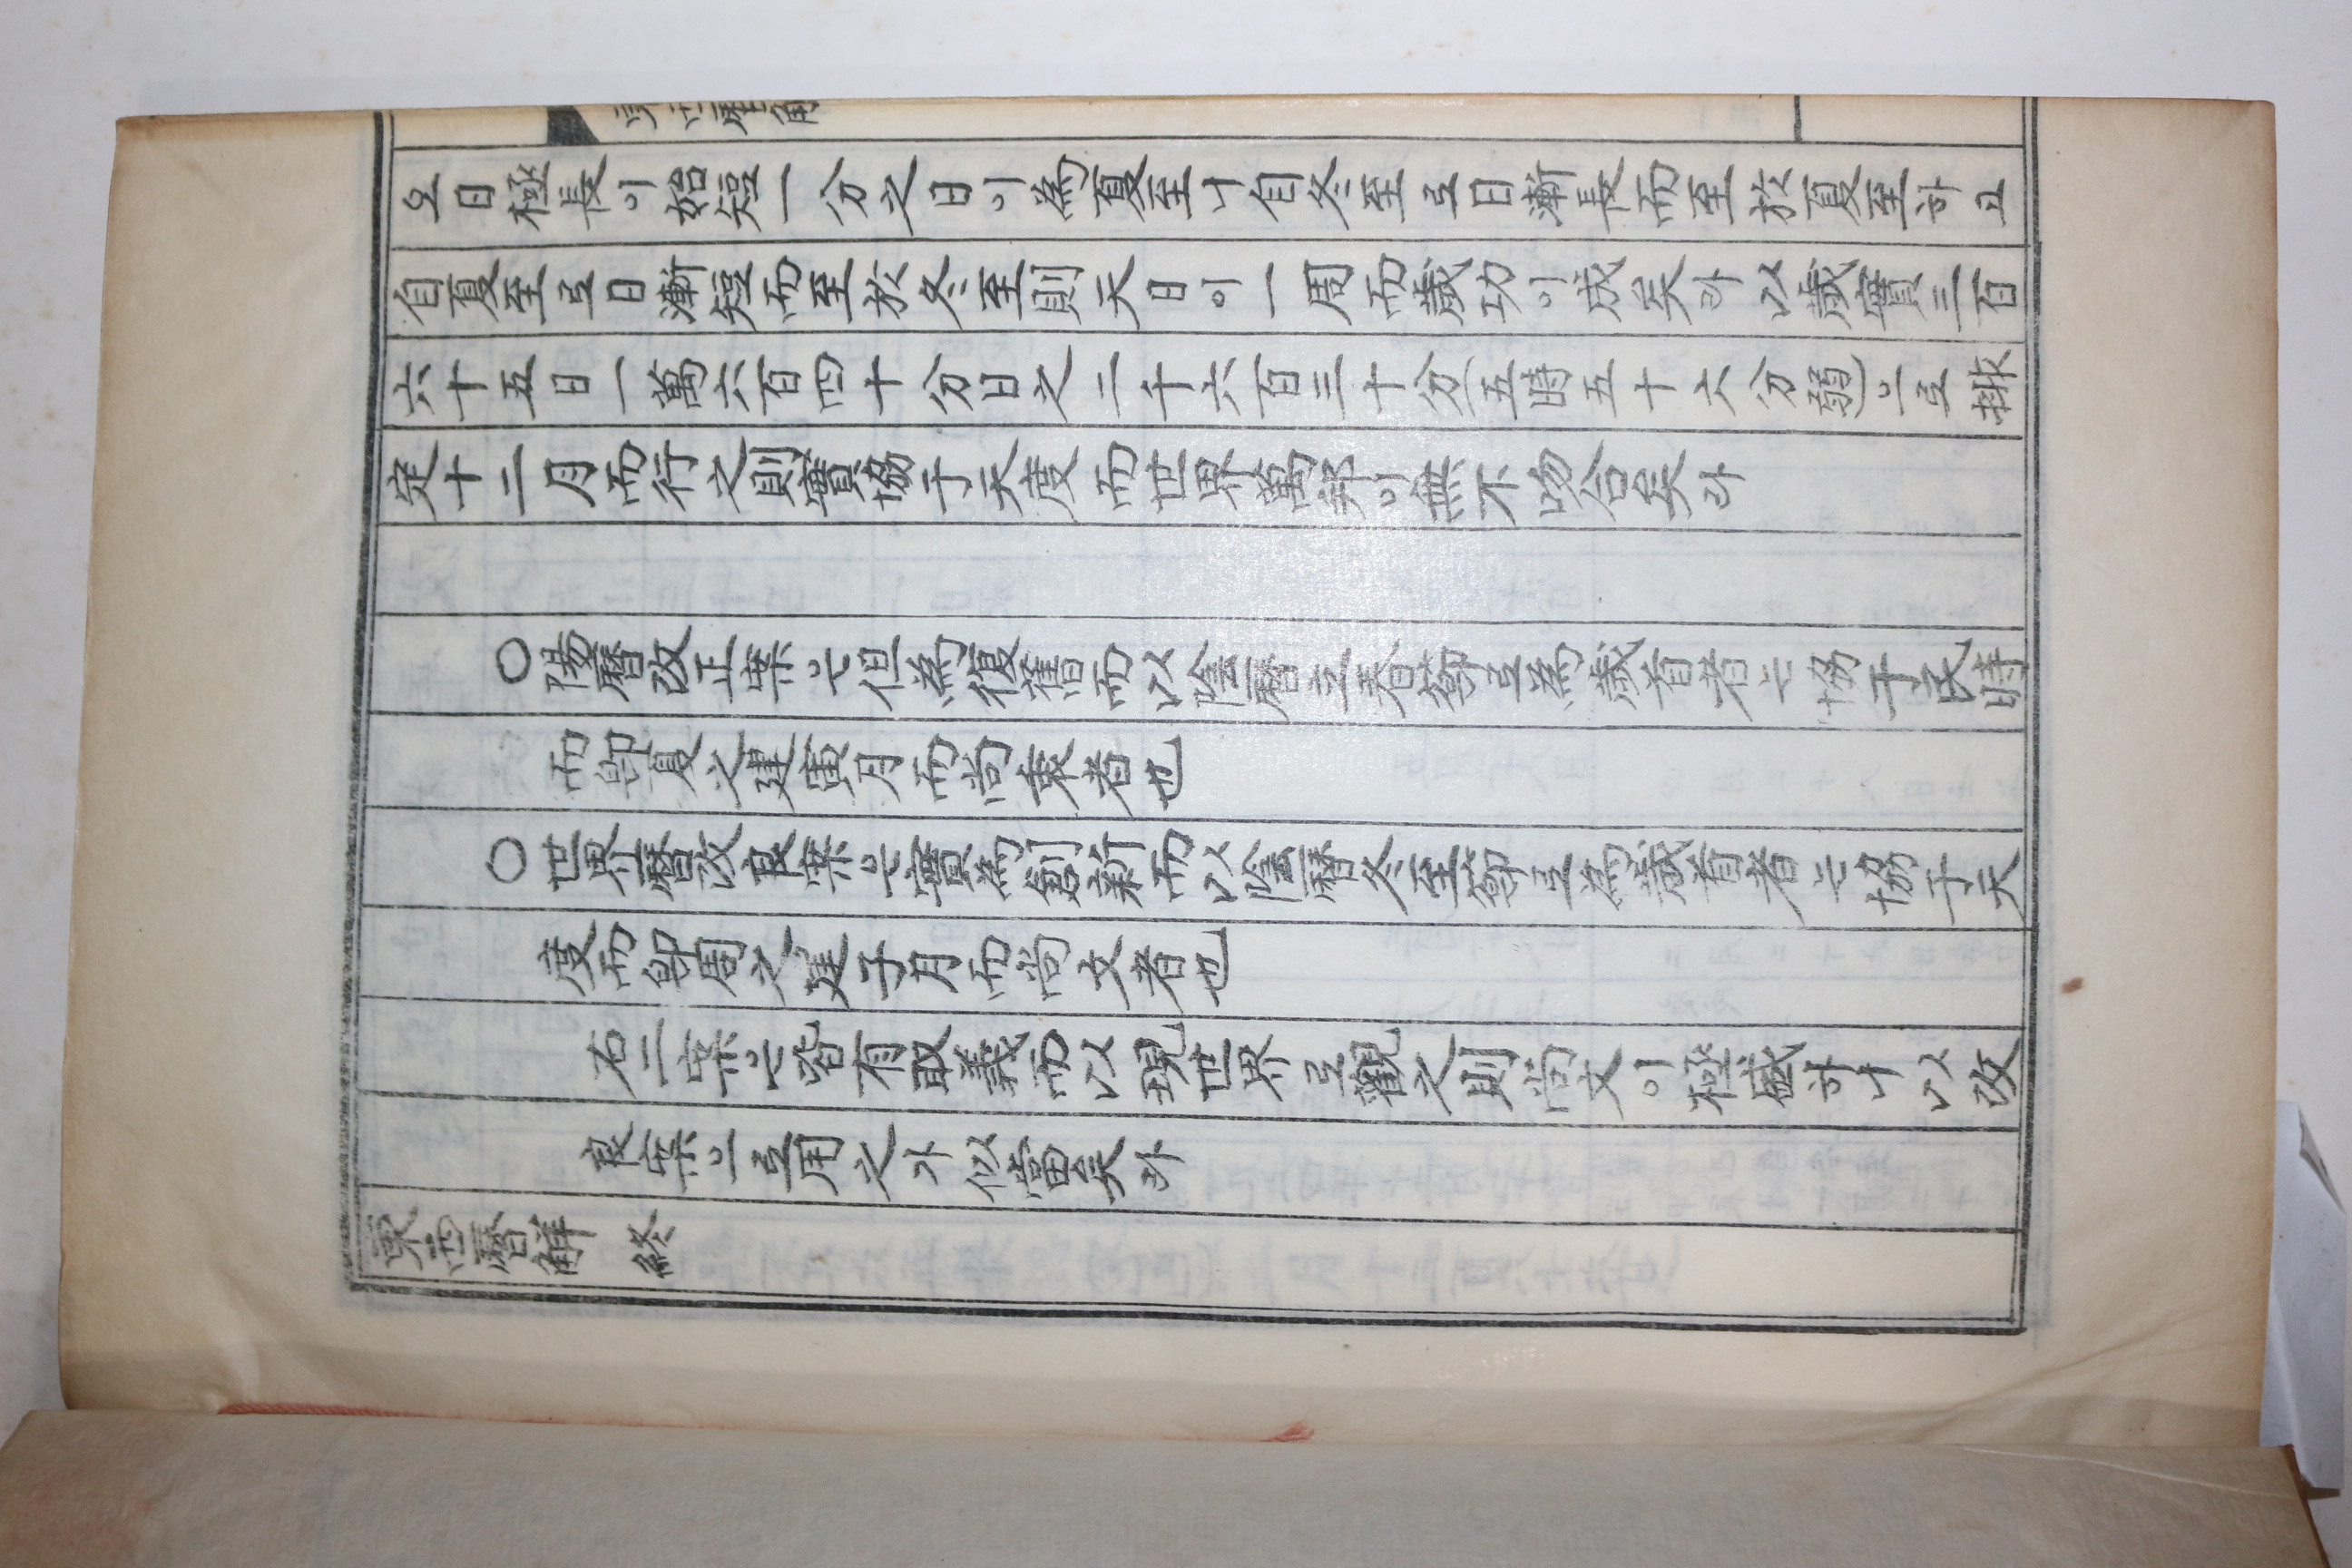 東西曆解
오日極長이始短一分之日이爲夏至니自冬至로日漸長而至於夏至하고
自夏至로日漸短而至於冬至則天日이一周而歲功이成矣라以歲實三百
六十五日一萬六百四十分日之二千六百三十分(五時五十六分弱)으로排
定十二月而行之則實協于天度而世界萬邦이無不吻合矣라
○陽曆改正案은但爲復舊而以陰曆立春節로爲歲首者는協于民時
而卽夏之建寅月而尚者也
○世界曆改良案은實爲創新而以陰曆冬至節로爲歲首者는協于天
度而卽周之建子月而尚文者也
右二案은皆有取義而以現世界로觀之則尚文이極盛하니以改
良案으로用之가似當矣라
東西曆解 終